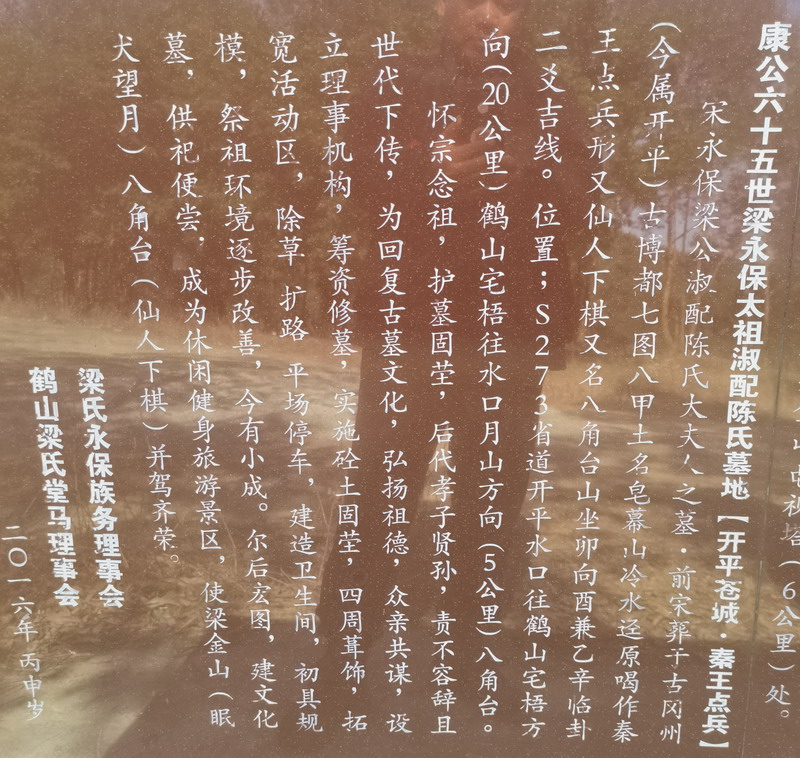 电视塔（6公里）处。
康公六十五世梁永保太祖淑配陈氏墓地【开平苍城·秦王点兵】
宋永保梁公淑配陈氏大夫人之墓·前宋葬于古冈州
（今属开平）古博都七图八甲土名皂幕山冷水迳原喝作秦
王点兵形又仙人下棋又名八角台山坐卯向酉兼乙辛临卦
二爻吉线。位置；S273省道开平水口往鹤山宅梧方
向（20公里）鹤山宅梧往水口月山方向（5公里）八角台。
怀宗念祖，护墓固茔，后代孝子贤孙，责不容辞且
世代下传，为回复古墓文化，弘扬祖德，众亲共谋，设
立理事机构，筹资修墓，实施砼土固茔，四周葺饰，拓
宽活动区，除草 扩路 平场停车，建造卫生间，初具规
模，祭祖环境逐步改善，今有小成。尔后宏图，建文化
墓，供祀便尝．成为休闲健身旅游景区，使梁金山（眠
犬望月）八角台（仙人下棋）并驾齐荣。
梁氏永保族务理事会
鹤山梁氏堂马理事会
二〇一六年 丙申岁